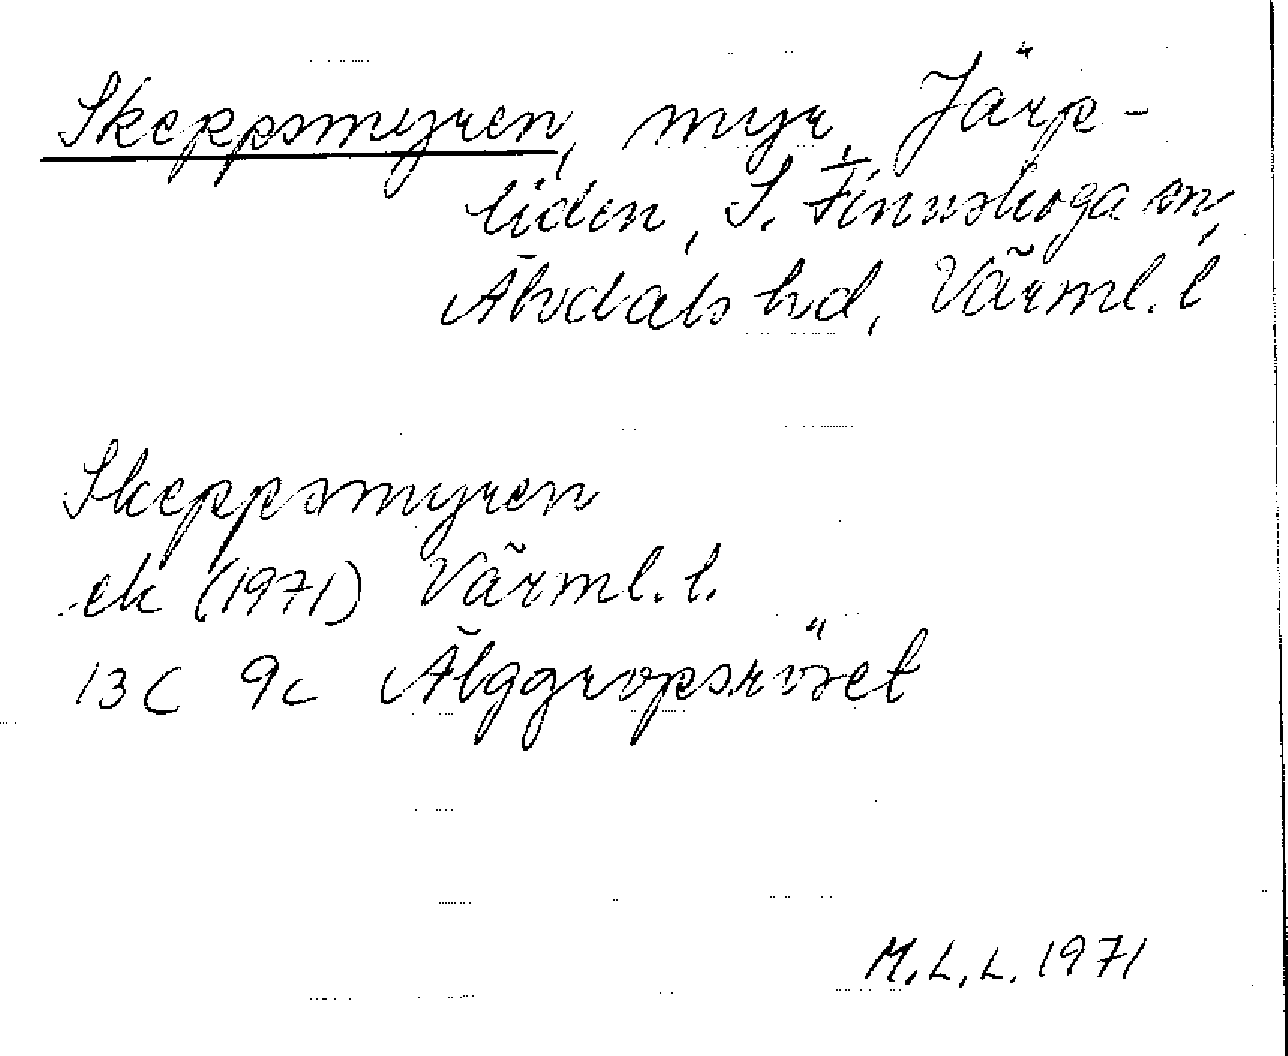 Skeppsmyren, myr, Järp-
liden, S. Finnskoga sn,
Älvdals hd, Värml. l
Skeppsmyren
ek (1971) Värml. l.
13C 9c Älggropsröset
M.L.L. 1971